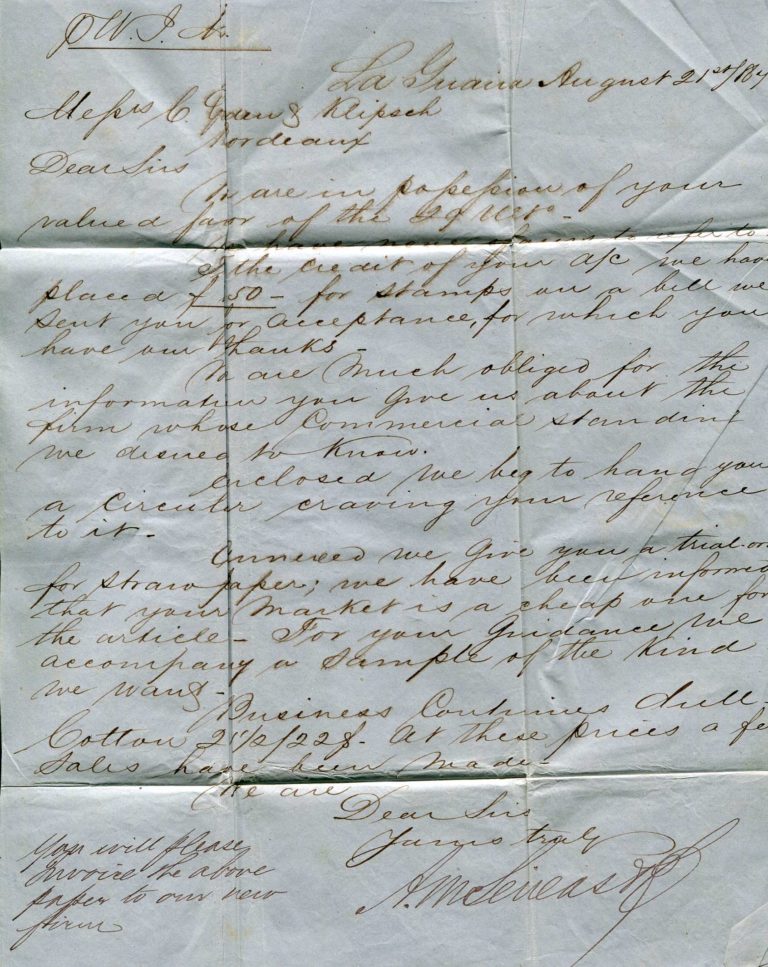 La Guaira August 21st/
Messrs C. Eden & Klipsch
Bordeaux
Dear Sirs
We are in possession of your
valued favor of the 29 Ulto.
to refer to.
To the credit of your a/c we have
placed 50 - for stamps on a bill we
sent you for acceptance, for which you
have our thanks -
We are much obliged for the
information you give us about the
firm whose Commercial standing
we desired to know.
Enclosed we beg to hand you
a circular craving your reference
to it -
Annexed we give you a trial or
for straw paper; we have been informed
that your market is a cheap one for
the article - For your guidance we
accompany a sample of the kind
we want -
Business Continues dull -
Cotton 21 1/2/22 At these prices a few
sales have been made -
We are
Dear Sirs
Yours truly
You will please
invoice the above
paper to our new
firm